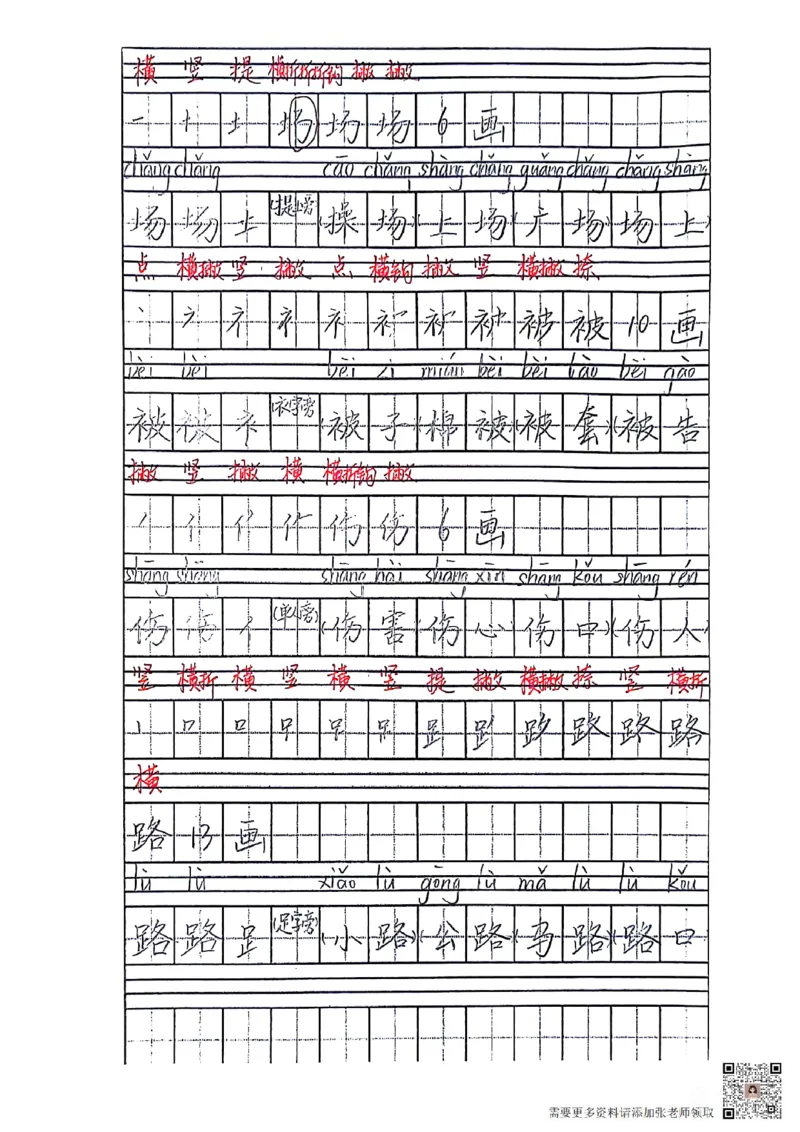 横 竖 提 横折折折钩 撇 撇
场 场 场 6 画
chǎng chǎng cāo chǎng shàng chǎng guǎng chǎng chǎng shàng
场 场 土 (提土旁) (操 场) (上 场) (广 场) (场 上)
点 横撇 竖 撇 点 横钩 撇 竖 横撇 捺
丶 衤 衤 衤 被 被 10 画
bèi bèi bèi zi mián bèi bèi tào bèi gào
被 被 衤 (衣字旁) (被 子) (棉 被) (被 套) (被 告)
撇 竖 撇 横 横折钩 撇
丿 亻 伤 伤 6 画
shāng shāng shāng hài shāng xīn shāng kǒu shāng rén
伤 伤 亻 (单人旁) (伤 害) (伤 心) (伤 口) (伤 人)
竖 横折 横 竖 横 竖 提 撇 横撇 捺 竖 横折
丨 口 路 路 路
横
路 13 画
lù lù xiǎo lù gōng lù mǎ lù lù kǒu
路 路 𧾷 (足字旁) (小 路) (公 路) (马 路) (路 口)
需要更多资料请添加张老师领取